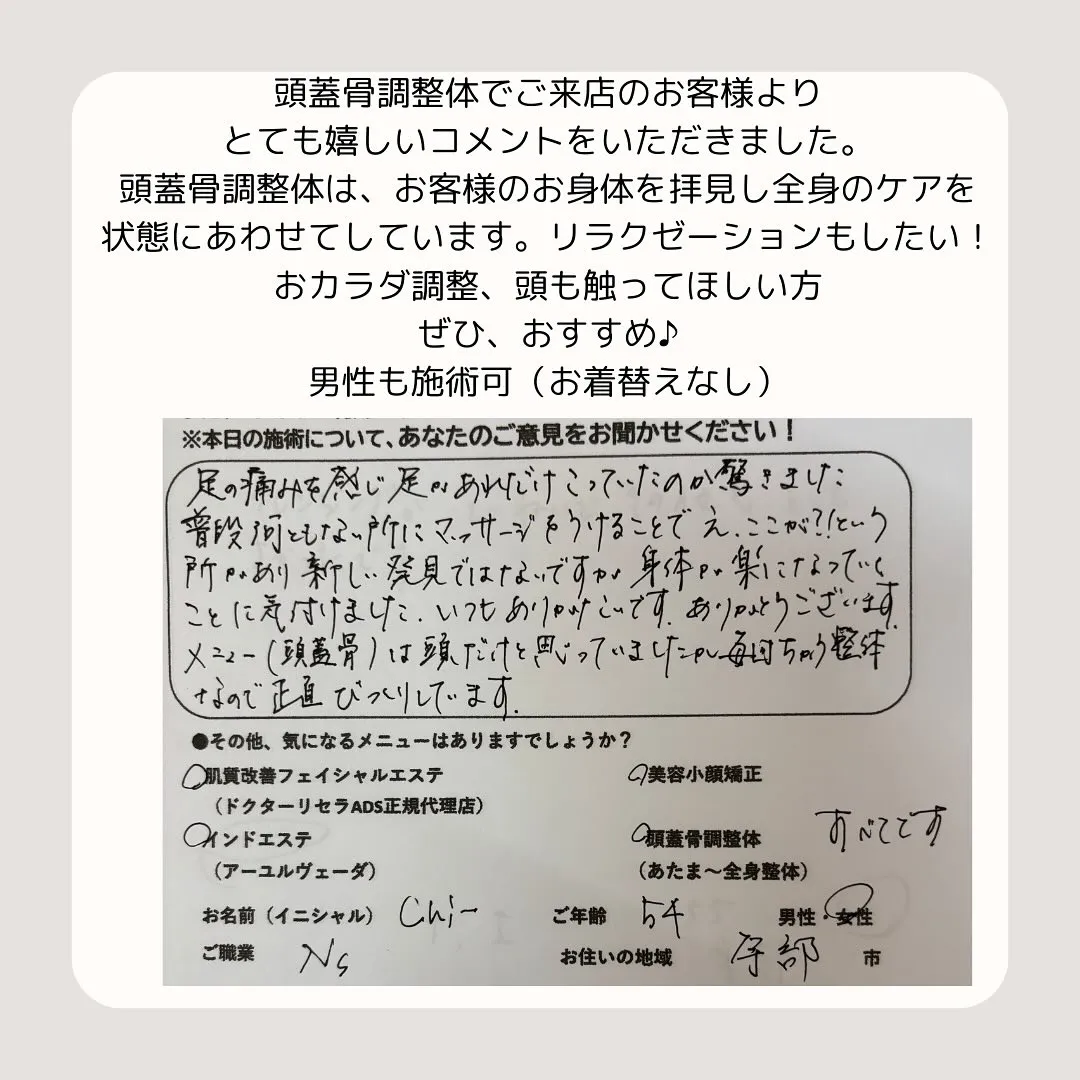 頭蓋骨調整体でご来店のお客様より
とても嬉しいコメントをいただきました。
頭蓋骨調整体は、お客様のお身体を拝見し全身のケアを
状態にあわせてしています。リラクゼーションもしたい！
おカラダ調整、頭も触ってほしい方
ぜひ、おすすめ♪
男性も施術可（お着替えなし）
※本日の施術について、あなたのご意見をお聞かせください！
足の痛みを感じ足があれだけこっていたのか驚きました
普段何ともない所にマッサージをうけることでえ、ここが?!という
所があり新しい発見ではないですが身体が楽になっていく
ことに気付けました. いつもありがたいです. ありがとうございます.
メニュー(頭蓋骨)は頭だけと思っていましたが毎回ちがう整体
なので正直びっくりしています.
●その他、気になるメニューはありますでしょうか？
肌質改善フェイシャルエステ
美容小顔矯正
（ドクターリセラADS正規代理店）
インドエステ
頭蓋骨調整体
すべてです
（アーユルヴェーダ）
（あたま～全身整体）
お名前（イニシャル） Chi-
ご年齢 54
男性・女性
ご職業 Ns
お住いの地域 宇部 市